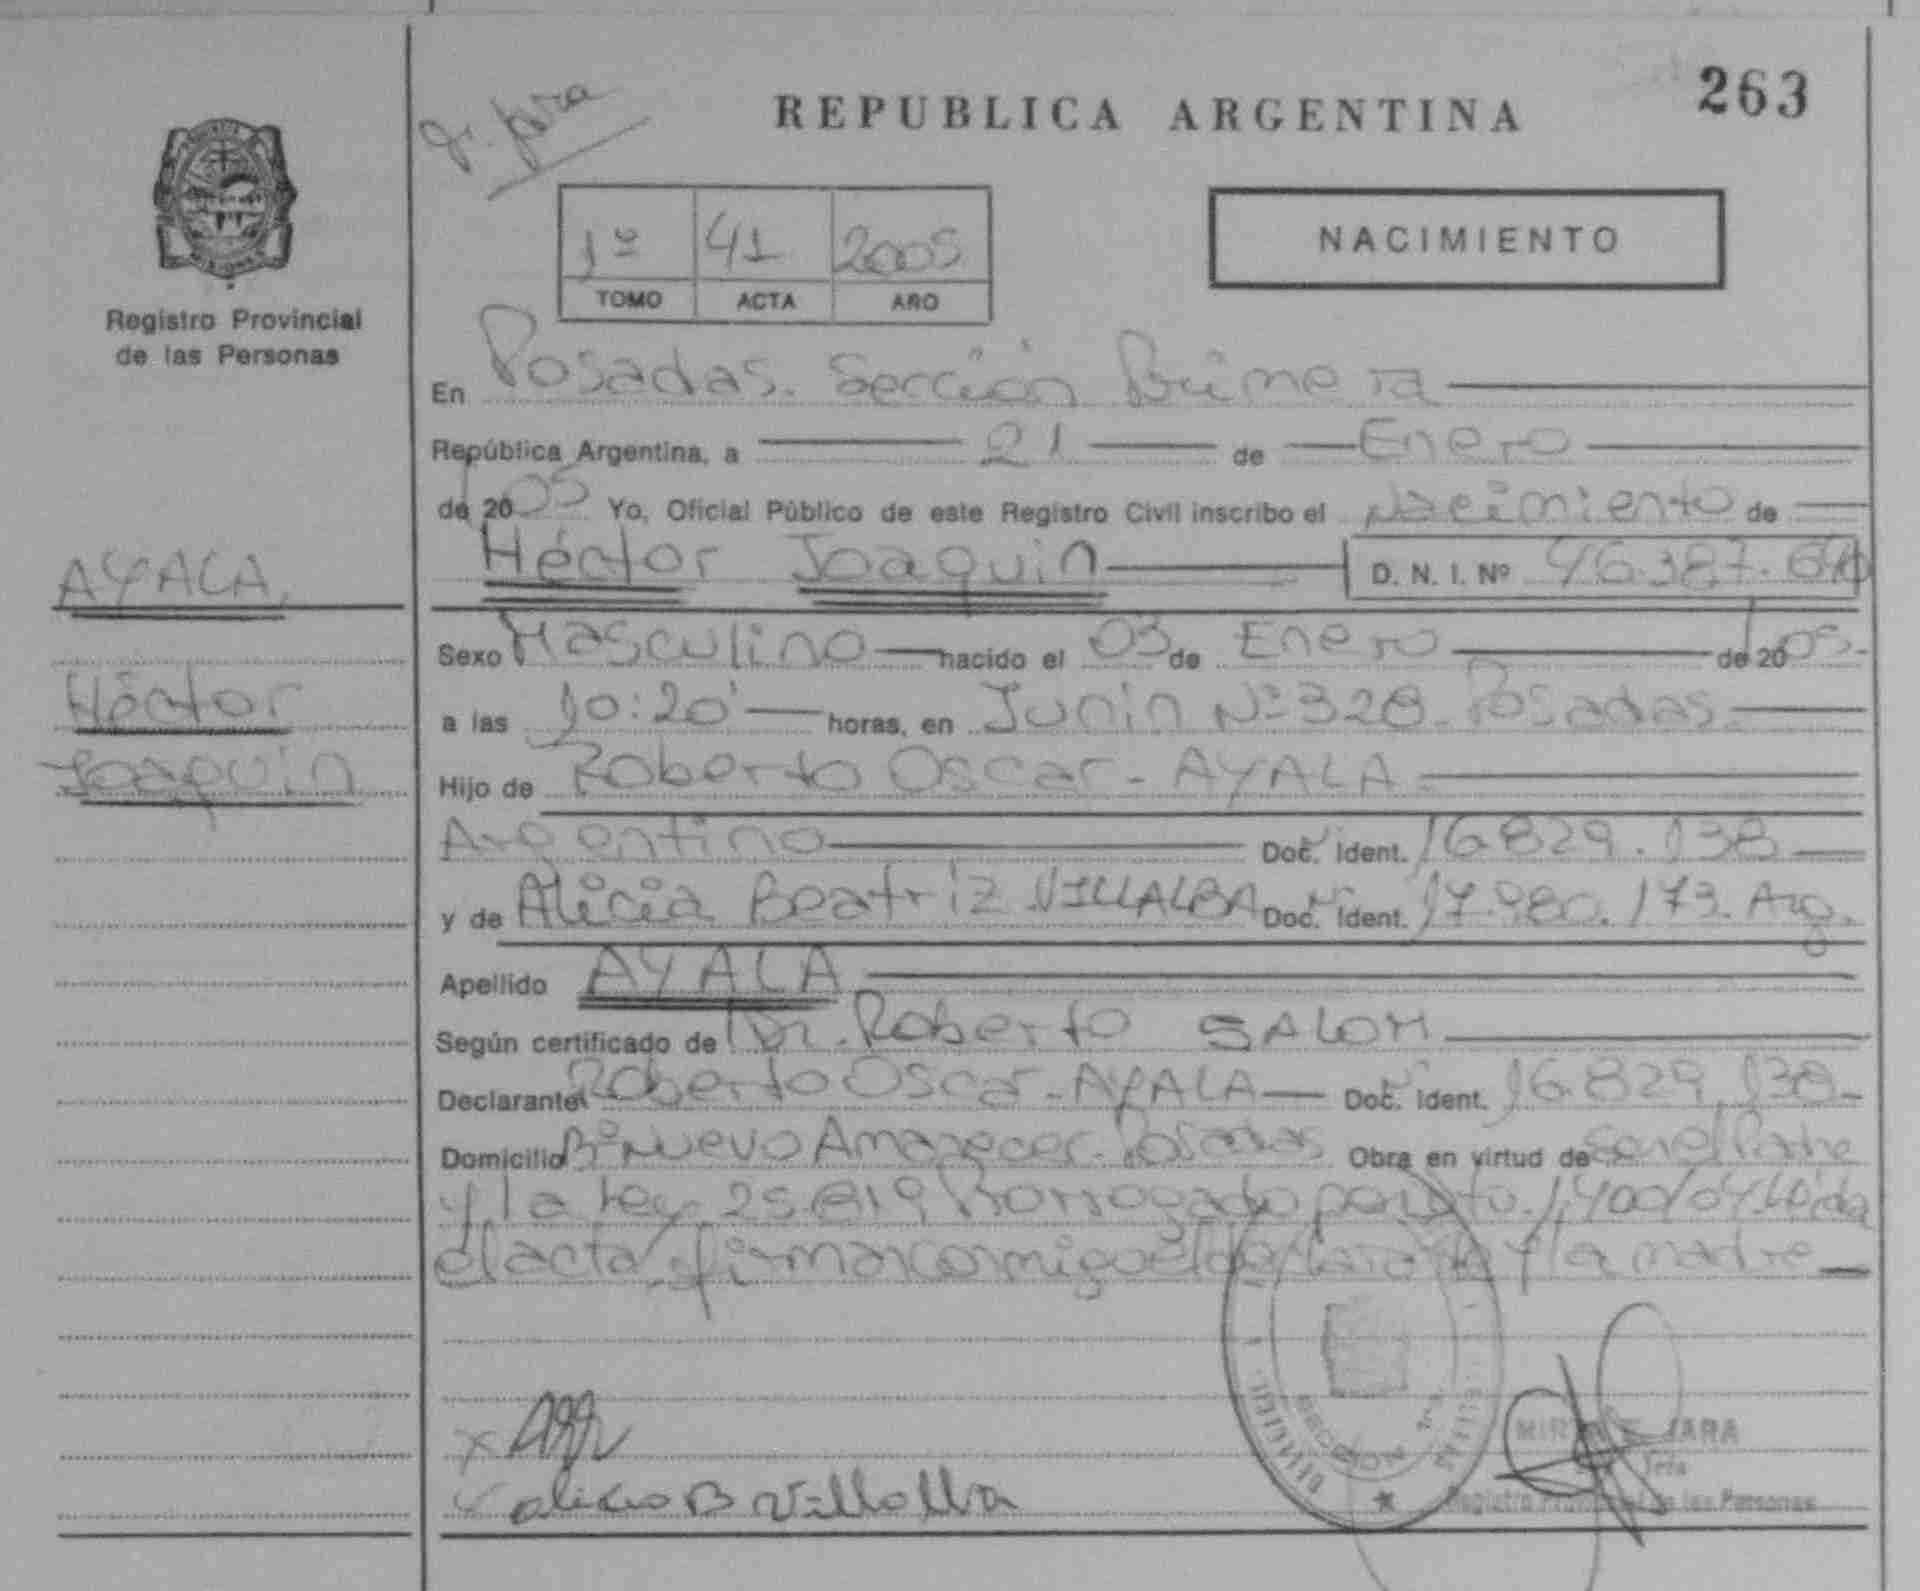 263
REPUBLICA ARGENTINA
NACIMIENTO
1º 41 2005
TOMO ACTA AÑO
Registro Provincial
de las Personas
AYALA,
Héctor
Joaquín
En Posadas. Sección Primera
República Argentina, a 21 de Enero
de 2005 Yo, Oficial Público de este Registro Civil inscribo el Nacimiento de
Héctor Joaquin D. N. I. Nº
Sexo Masculino nacido el 03 de Enero de 2005.
a las 10:20' horas, en Junin Nº 328. Posadas.
Hijo de Roberto Oscar - AYALA.
Argentino Doc. Ident. 16.829.138
y de Alicia Beatriz VILLALBA Doc. Ident. 17.980.173. Arg.
Apellido AYALA
Según certificado de Dr. Roberto SALOM
Declarante Roberto Oscar - AYALA Doc. Ident. 16.829.138-
Domicilio Bº Nuevo Amanecer. Posadas Obra en virtud de ser el Padre
y la Ley 25.819 Dto. 1.400/04. Leída
el acta, firman conmigo el declarante y la madre
Alicia B Villalba
SECCION 1ra
JARA
Registro Provincial de las Personas